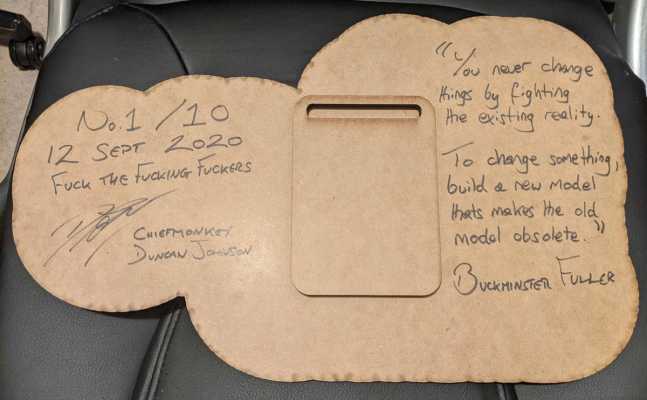 No.1 /10
12 SEPT 2020
FUCK THE FUCKING FUCKERS
CHIEFMONKEY
DUNCAN JOHNSON
"You never change
things by fighting
the existing reality.
To change something,
build a new model
thats makes the old
model obsolete."
BUCKMINSTER FULLER